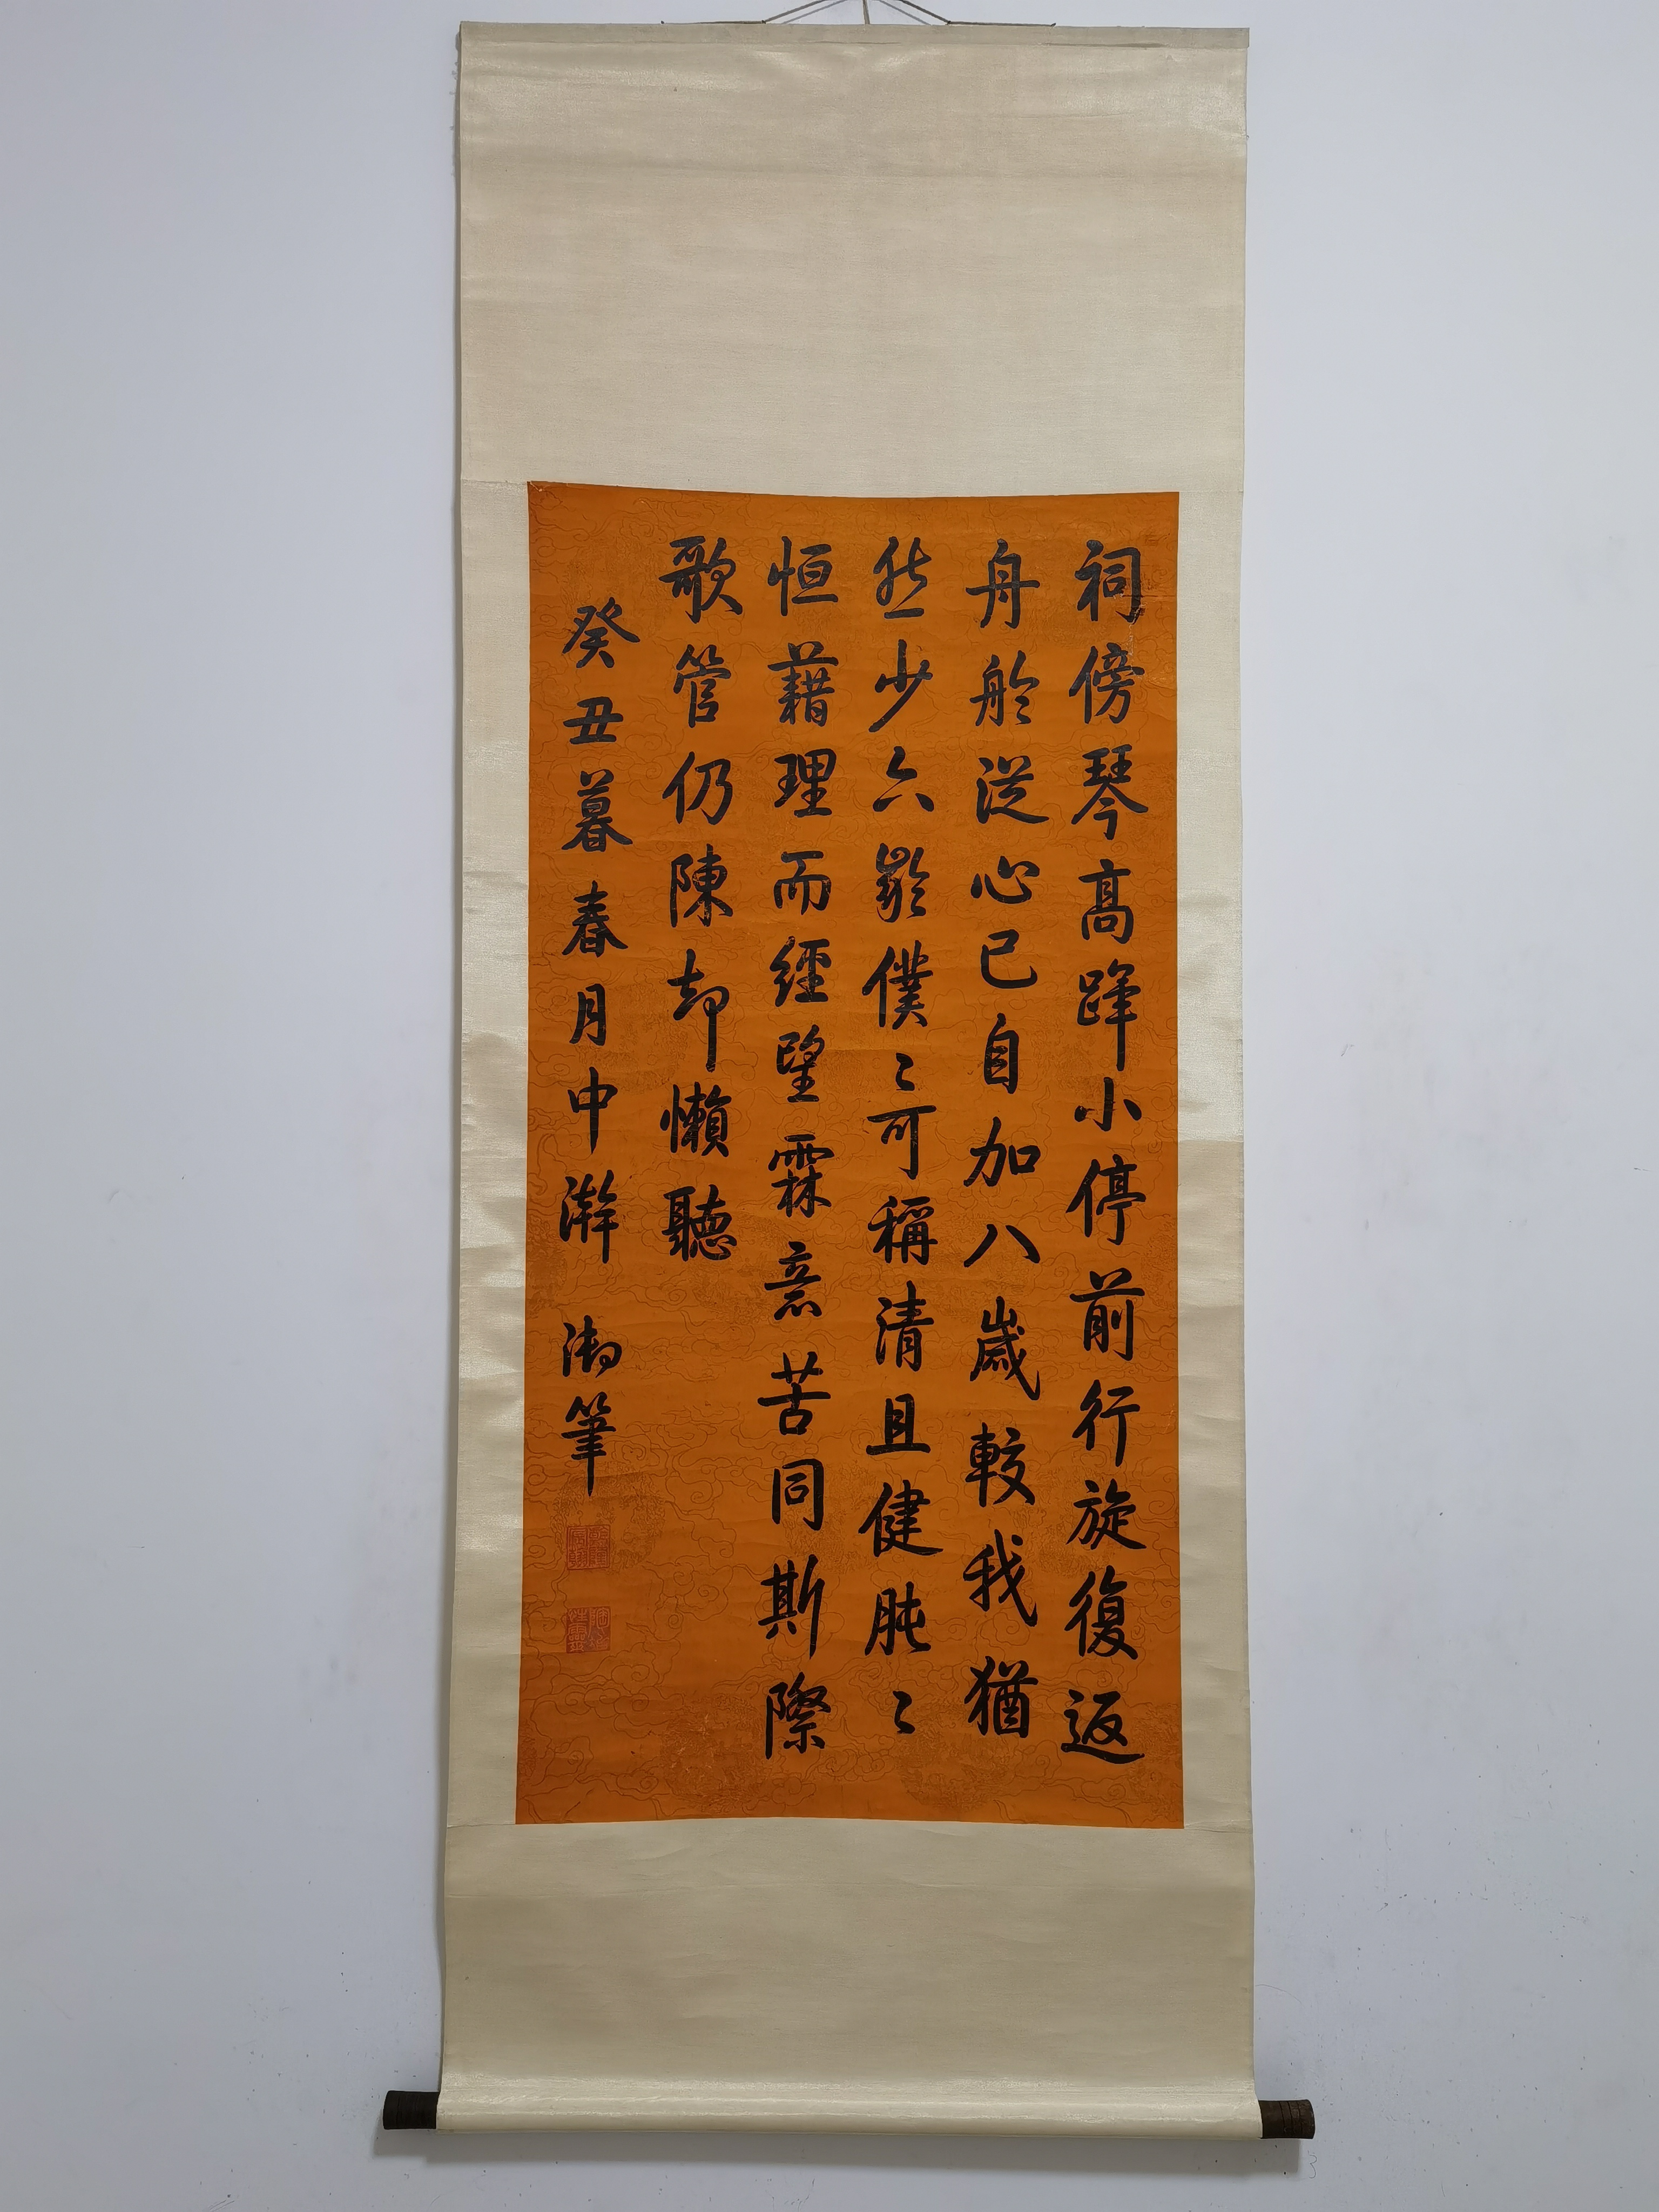 祠傍琴高蹕小停前行旋復返
舟舲從心已自加八歲較我猶
然少六齡僕〻可稱清且健肫〻
恒藉理而經望霖意苦同斯際
歌管仍陳却懶聽
癸丑暮春月中澣 御筆